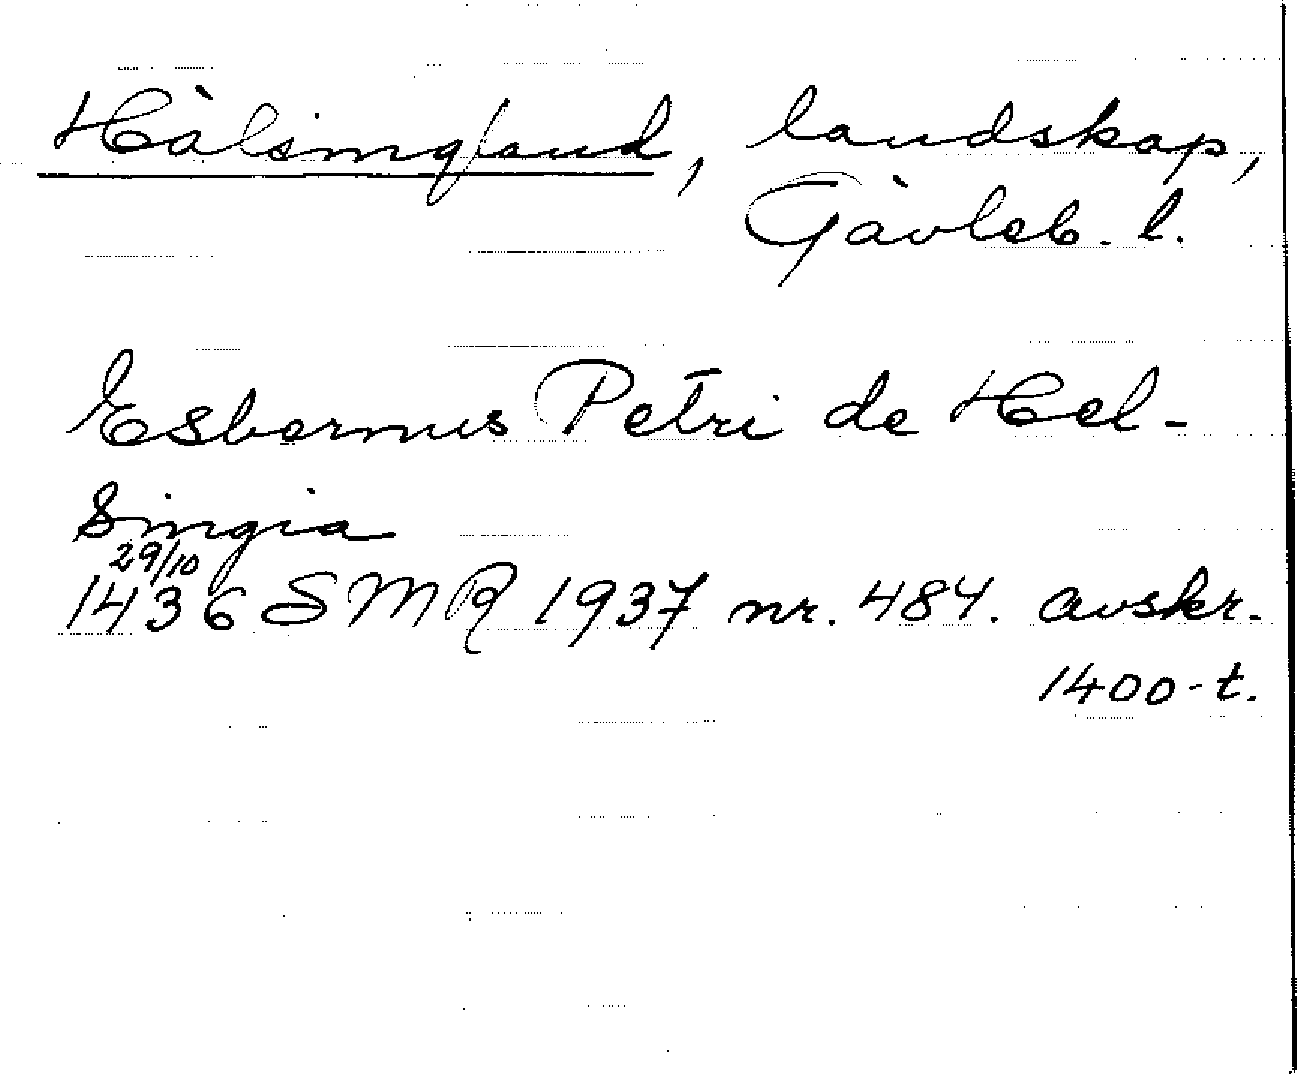 Hälsingland, landskap,
Gävleb. l.
Esbernus Petri de Hel-
singia
29/10
1436 SMR 1937 nr. 484. avskr.
1400-t.